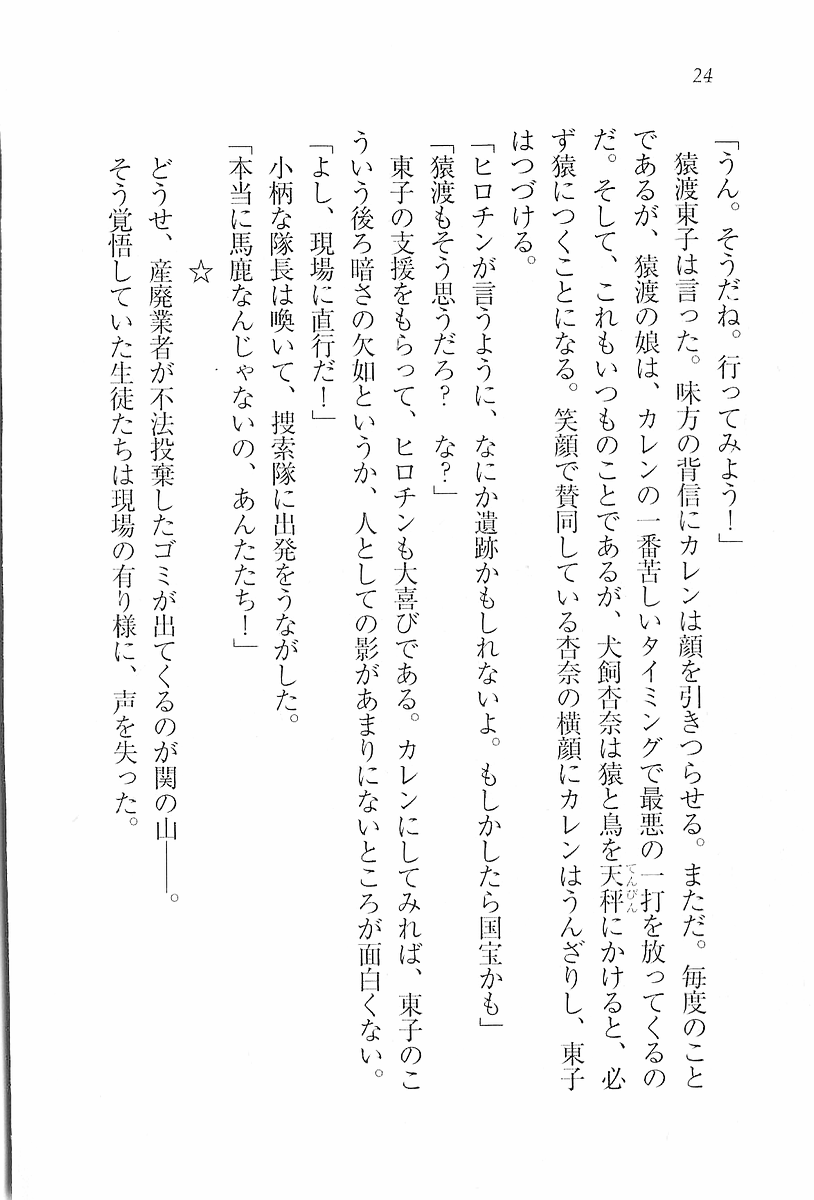 24
「うん。そうだね。行ってみよう！」
　猿渡東子は言った。味方の背信にカレンは顔を引きつらせる。まただ。毎度のこと
であるが、猿渡の娘は、カレンの一番苦しいタイミングで最悪の一打を放ってくるの
だ。そして、これもいつものことであるが、犬飼杏奈は猿と鳥を天秤にかけると、必
てんびん
ず猿につくことになる。笑顔で賛同している杏奈の横顔にカレンはうんざりし、東子
はつづける。
「ヒロチンが言うように、なにか遺跡かもしれないよ。もしかしたら国宝かも」
「猿渡もそう思うだろ？　な？」
　東子の支援をもらって、ヒロチンも大喜びである。カレンにしてみれば、東子のこ
ういう後ろ暗さの欠如というか、人としての影があまりにないところが面白くない。
「よし、現場に直行だ！」
　小柄な隊長は喚いて、捜索隊に出発をうながした。
「本当に馬鹿なんじゃないの、あんたたち！」
☆
　どうせ、産廃業者が不法投棄したゴミが出てくるのが関の山――。
　そう覚悟していた生徒たちは現場の有り様に、声を失った。